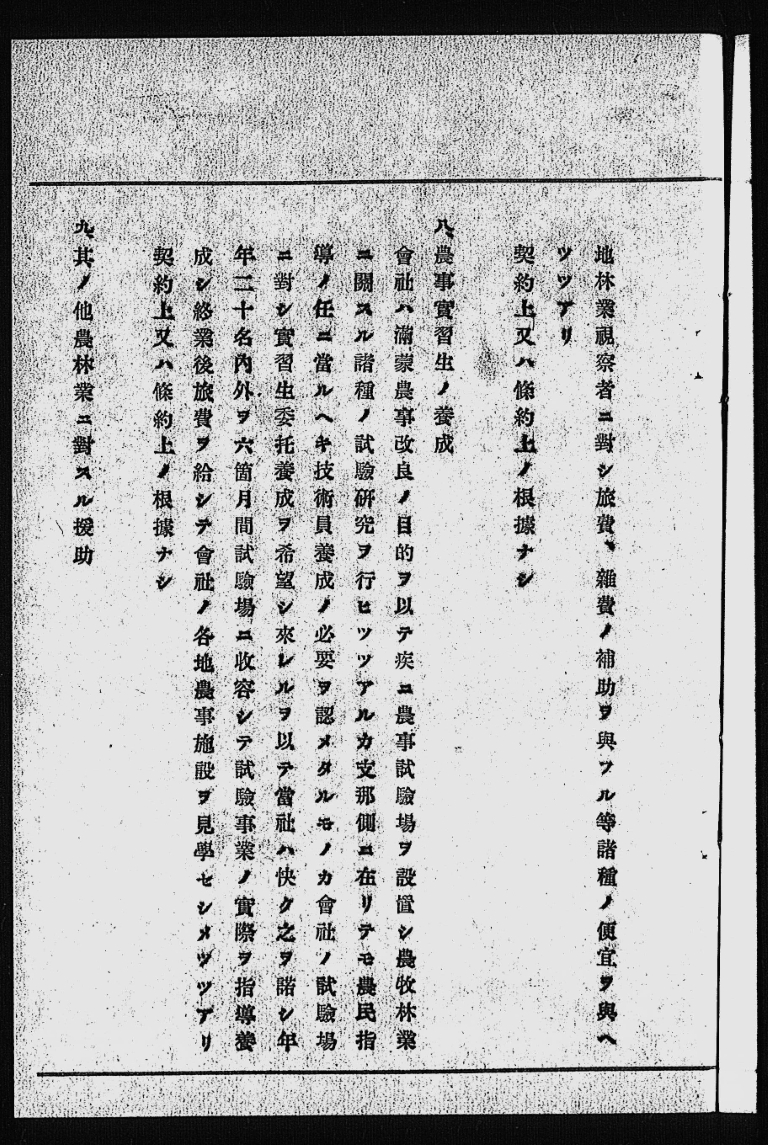 地林業視察者ニ對シ旅費、雜費ノ補助ヲ與フル等諸種ノ便宜ヲ與ヘ
ツツアリ
契約上又ハ條約上ノ根據ナシ
八、農事實習生ノ養成
會社ハ滿蒙農事改良ノ目的ヲ以テ疾ニ農事試驗場ヲ設置シ農牧林業
ニ關スル諸種ノ試驗硏究ヲ行ヒツツアルカ支那側ニ在リテモ農民指
導ノ任ニ當ルヘキ技術員養成ノ必要ヲ認メタルモノカ會社ノ試驗場
ニ對シ實習生委托養成ヲ希望シ來レルヲ以テ當社ハ快ク之ヲ諾シ年
年二十名內外ヲ六箇月間試驗場ニ收容シテ試驗事業ノ實際ヲ指導養
成シ終業後旅費ヲ給シテ會社ノ各地農事施設ヲ見學セシメツツアリ
契約上又ハ條約上ノ根據ナシ
九、其ノ他農林業ニ對スル援助